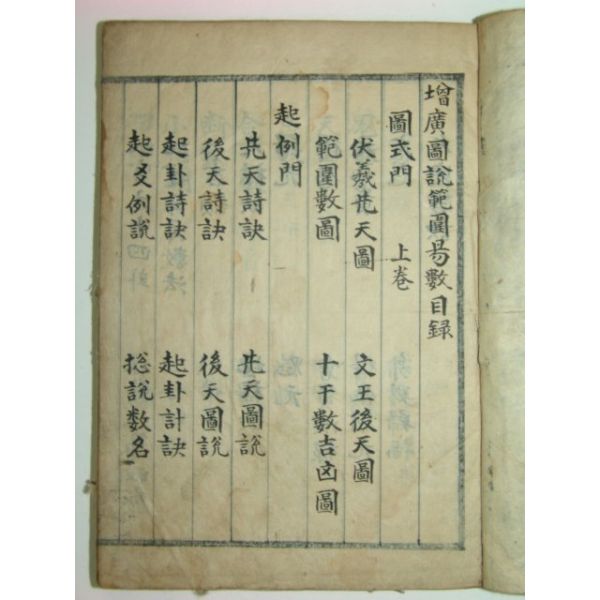 增廣圖說範圍易數目録
圖式門 上卷
伏羲先天圖 文王後天圖
範圍數圖 十干數吉凶圖
起例門
先天詩訣 先天圖說
後天詩訣 後天圖說
起卦詩訣 起卦計訣
起爻例說 捴說数名